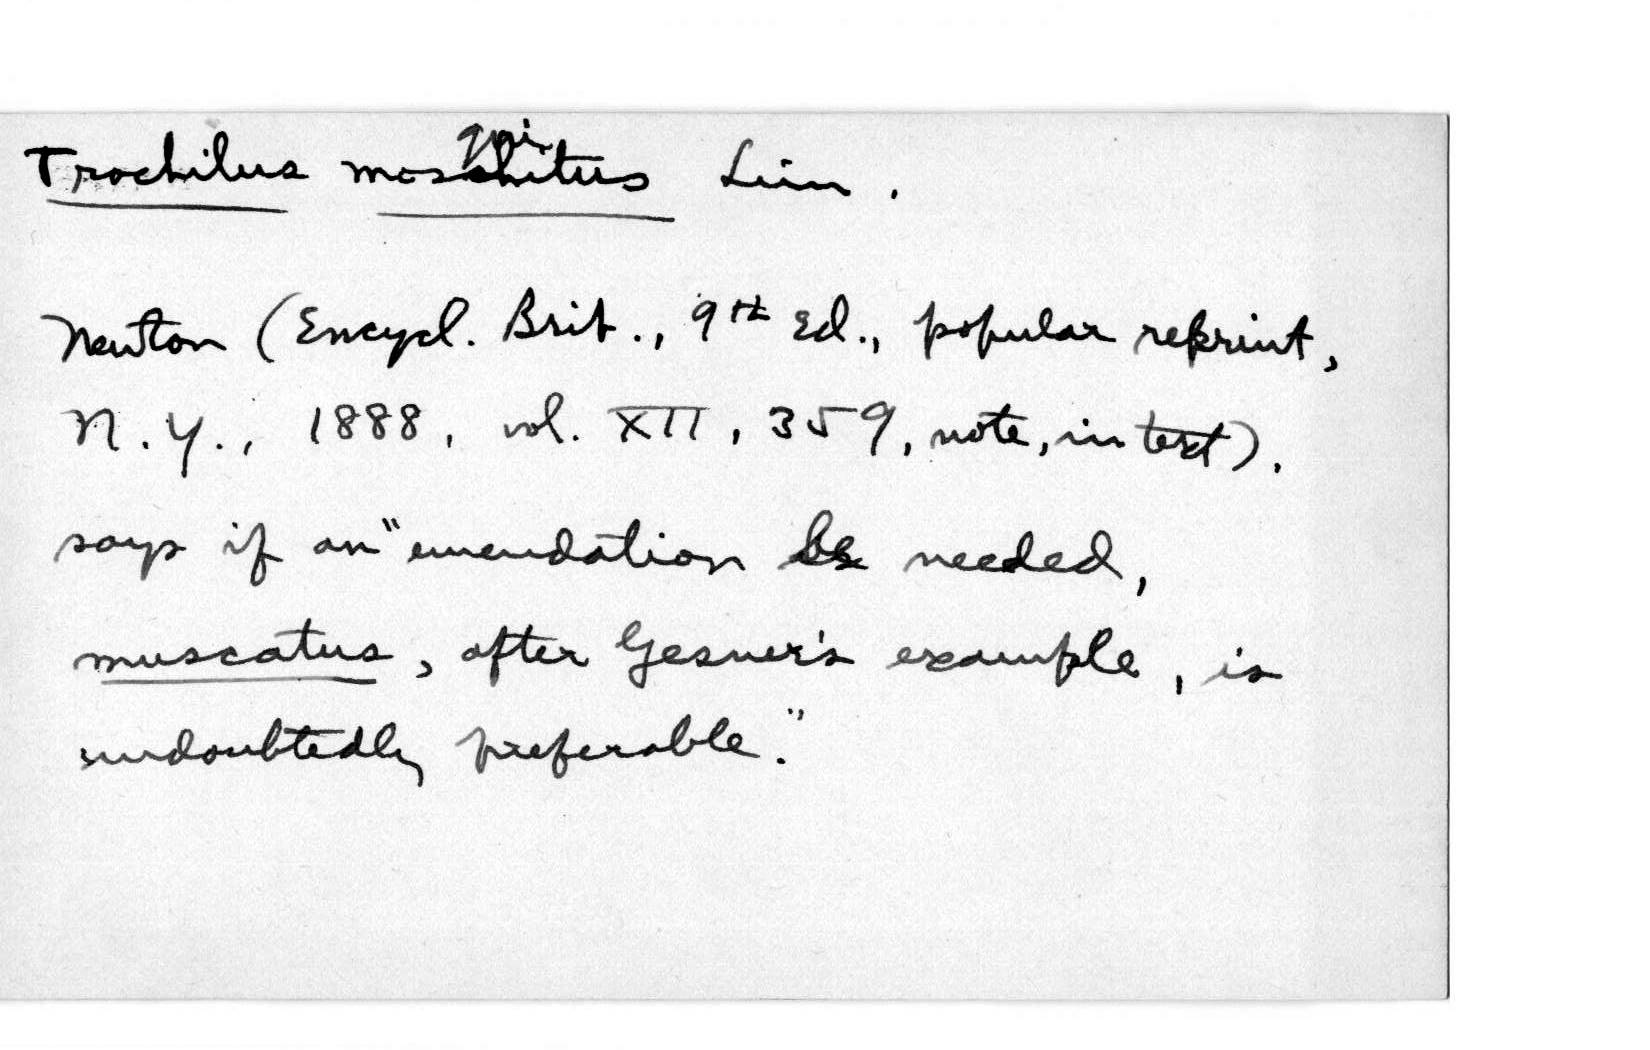 Trochilus mosquitus Linn.
Newton (Encycl. Brit., 9th Ed., popular reprint,
N.Y., 1888, vol. XII, 359, note, in text).
says if an "emendation be needed,
muscatus, after Gesner's example, is
undoubtedly preferable."